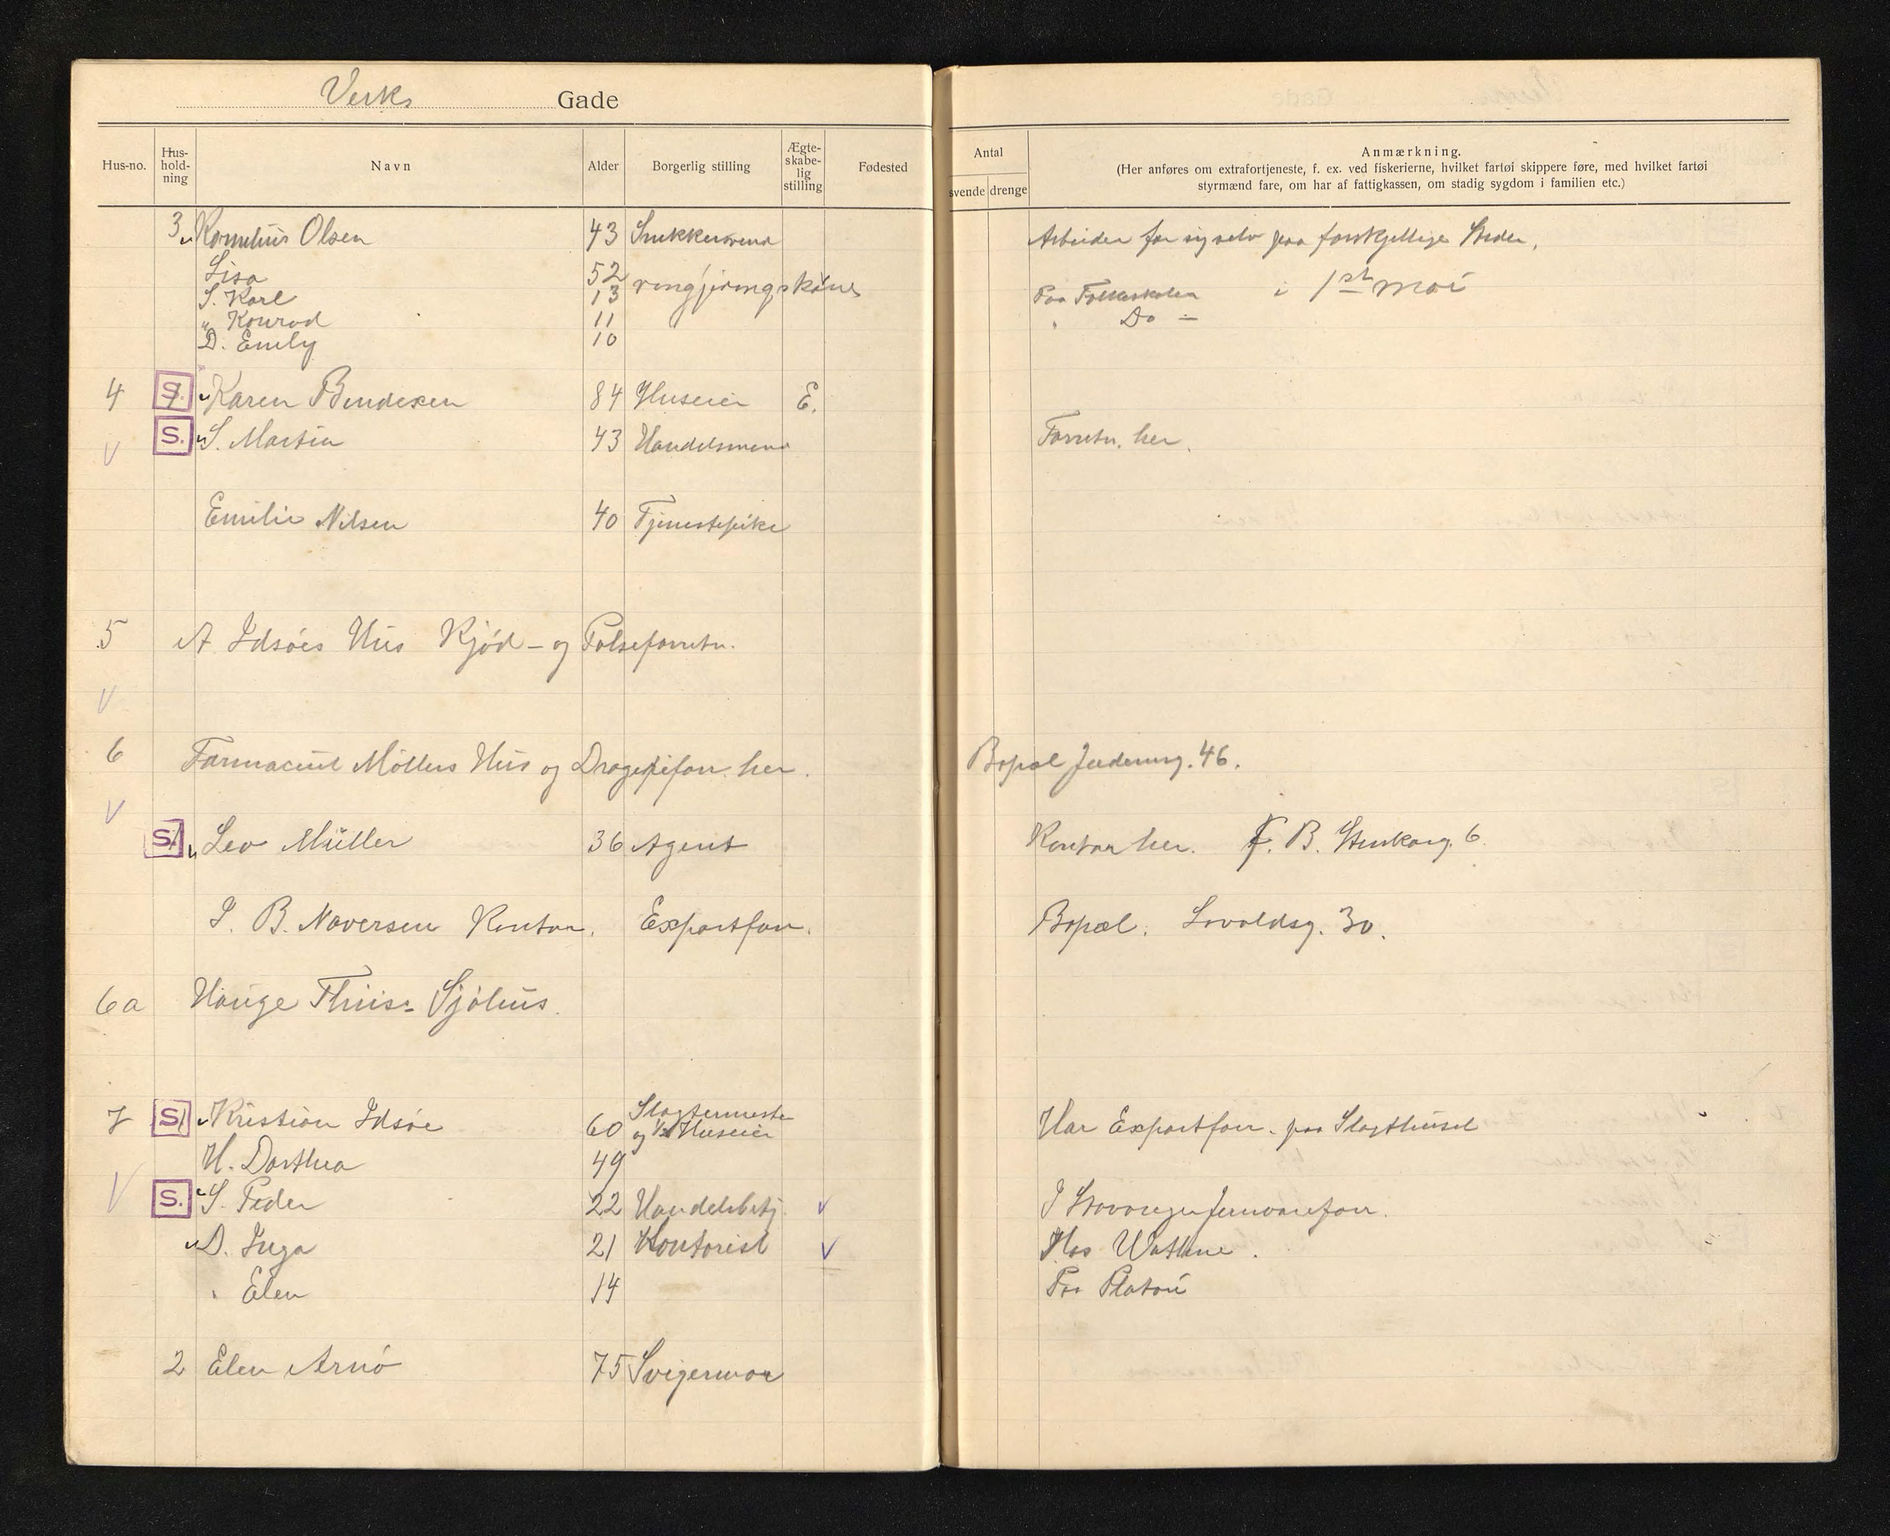 Verks Gade
Hus-no. Hus-hold-ning Navn Alder Borgerlig stilling Ægte-skabe-lig stilling Fødested
Antal svende drenge
Anmærkning.
(Her anføres om extrafortjeneste, f. ex. ved fiskerierne, hvilket fartøi skippere føre, med hvilket fartøi
styrmænd fare, om har af fattigkassen, om stadig sygdom i familien etc.)
3 Kornelius Olsen 43 Snekkersvend Arbeider for sig selv paa forskjellige Steder.
Lisa 52 rengjøringskone
S. Karl 13 Paa Folkeskolen i 1st mai
" Konrad 11 " Do —
D. Emily 10
4 S. Karen Bendexen 84 Huseier E.
V S. S. Martin 43 Handelsmand Forretn. her.
Emilie Nilsen 40 Tjenestepike
5 A Idsøes Hus Kjød- og Pølseforretn.
V
6 Farmaceut Møllers Hus og her. Bopæl Jæderveg. 46.
V
S. Leo Müller 36 Agent Kontor her. B. Stenkarg. 6.
I. B. Naversen Kontor. Exportforr. Bopæl. Lovoldsg. 30.
6a Hauge Thiis- Sjøhus.
7 S. Kristian Idsøe 60 Slagtermester og 1/2 Huseier Har Exportforr. paa Slagthuset
H. Dorthea 49
V S. S. Peder 22 Handelsbetj. V I Stavanger Jernvareforr.
D. Inga 21 Kontorist V Hos Wathne.
" Elen 14 Paa Platou
2 Elen Arnø 75 Svigermor